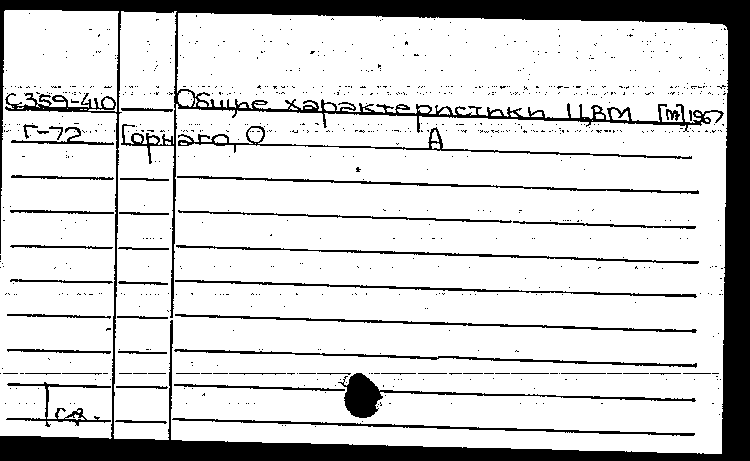 С359-410 Общие характеристики ЦВМ [М],1967
Г-72 Горнаго, О А